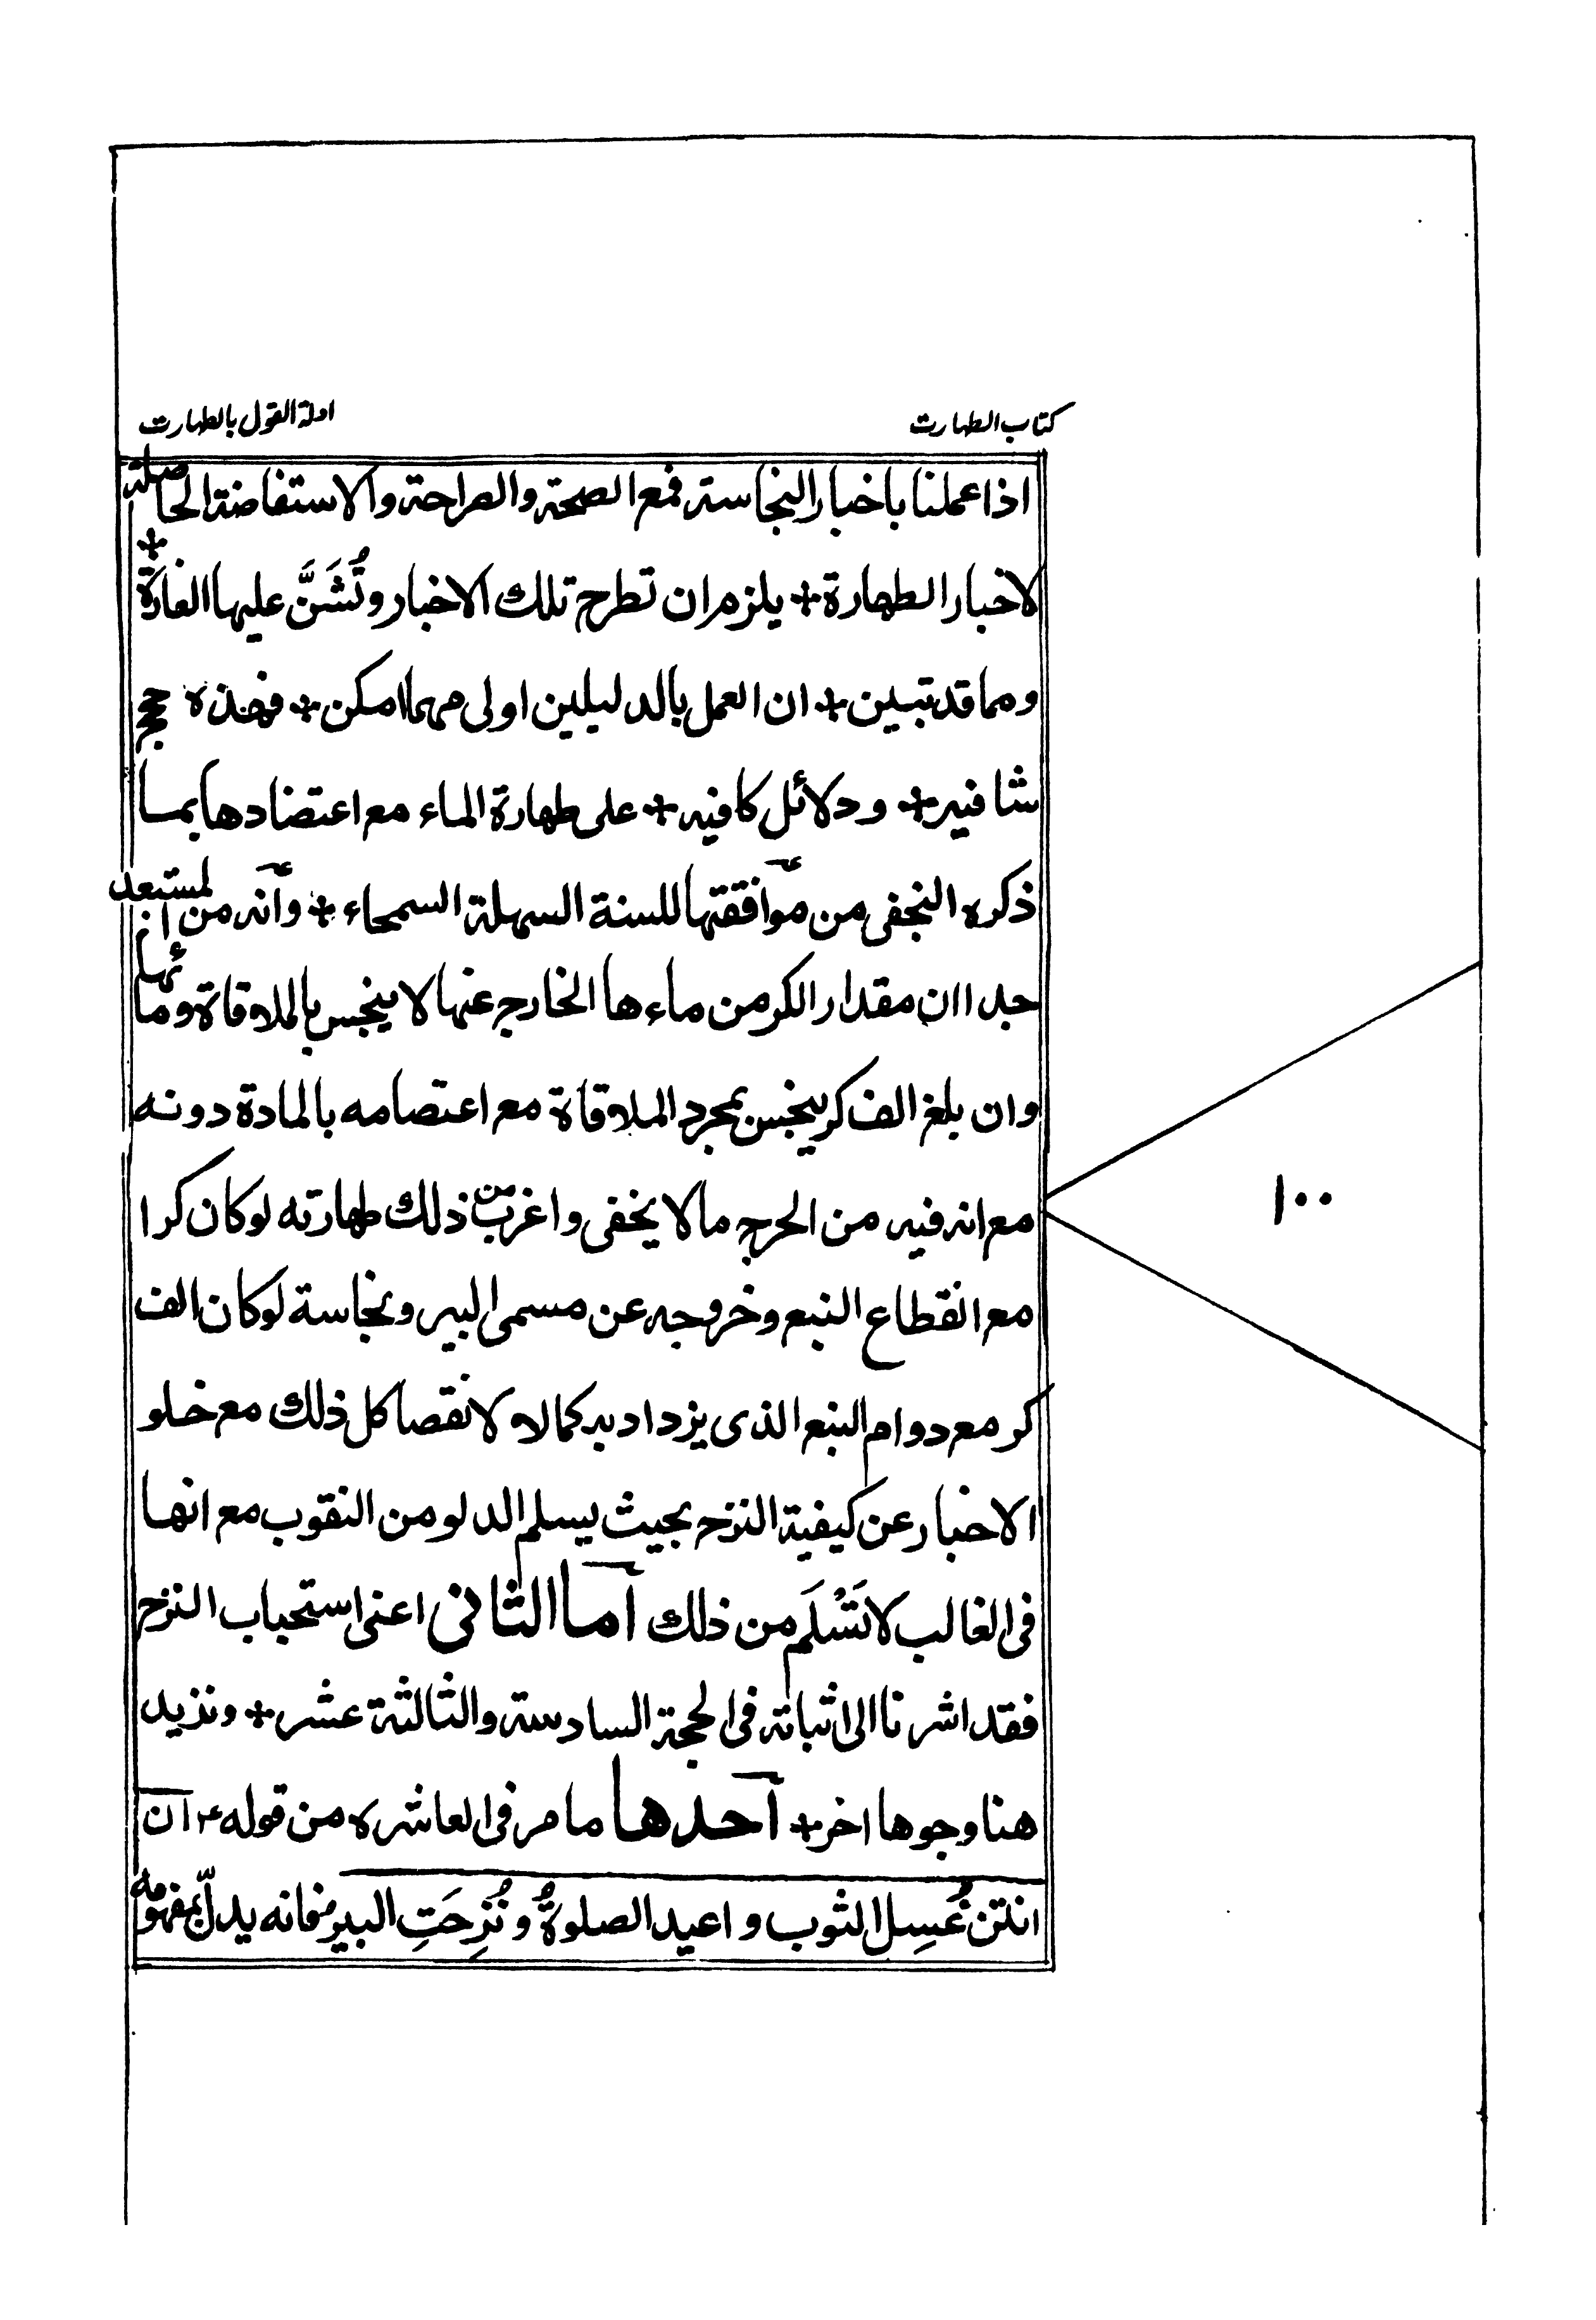 كتاب الطهارت
ادلة القول بالطهارت
اذا عملنا باخبار النجاسة فمع الصحة والصراحة والاستفاضة الحاصلة
لاخبار الطهارة + يلزم ان تطرح تلك الاخبار وتُشَنَّ عليها الغارة +
ومما قد تبين + ان العمل بالدليلين اولى مهما امكن + فهذه حجج
شافيه + ودلائل كافيه + على طهارة الماء مع اعتضادها بمسا
ذكره النجفى من موافقتها للسنة السهلة السمحاء + وانه من المستبعد
جدا ان مقدار الكر من ماءها الخارج عنها لا ينجس بالملاقاة ومائها
وان بلغ الف كر ينجس بمجرد الملاقاة مع اعتصامه بالمادة دونه
مع انه فيه من الحرج ما لا يخفى واغرب من ذلك طهارته لو كان كرا
مع انقطاع النبع وخروجه عن مسمى البير ونجاسة لو كان الف
كر مع دوام النبع الذى يزداد به كمالا ولا نقصا كل ذلك مع خلو
الاخبار عن كيفية النزح بحيث يسلم الدلو من النقوب مع انها
فى الغالب لا تَسْلَم من ذلك اما الثانى اعنى استحباب النزح
فقد اشرنا الى اثباته فى الحجة السادسة والثالثة عشر + ونزيد
هنا وجوها اخر + احدها ما مر فى العاشره من قوله ع ان
انتن غُسِل الثوب واعيد الصلوةُ ونُزِحَتِ البير فانه يدلّ بمفهومه
١٠٠